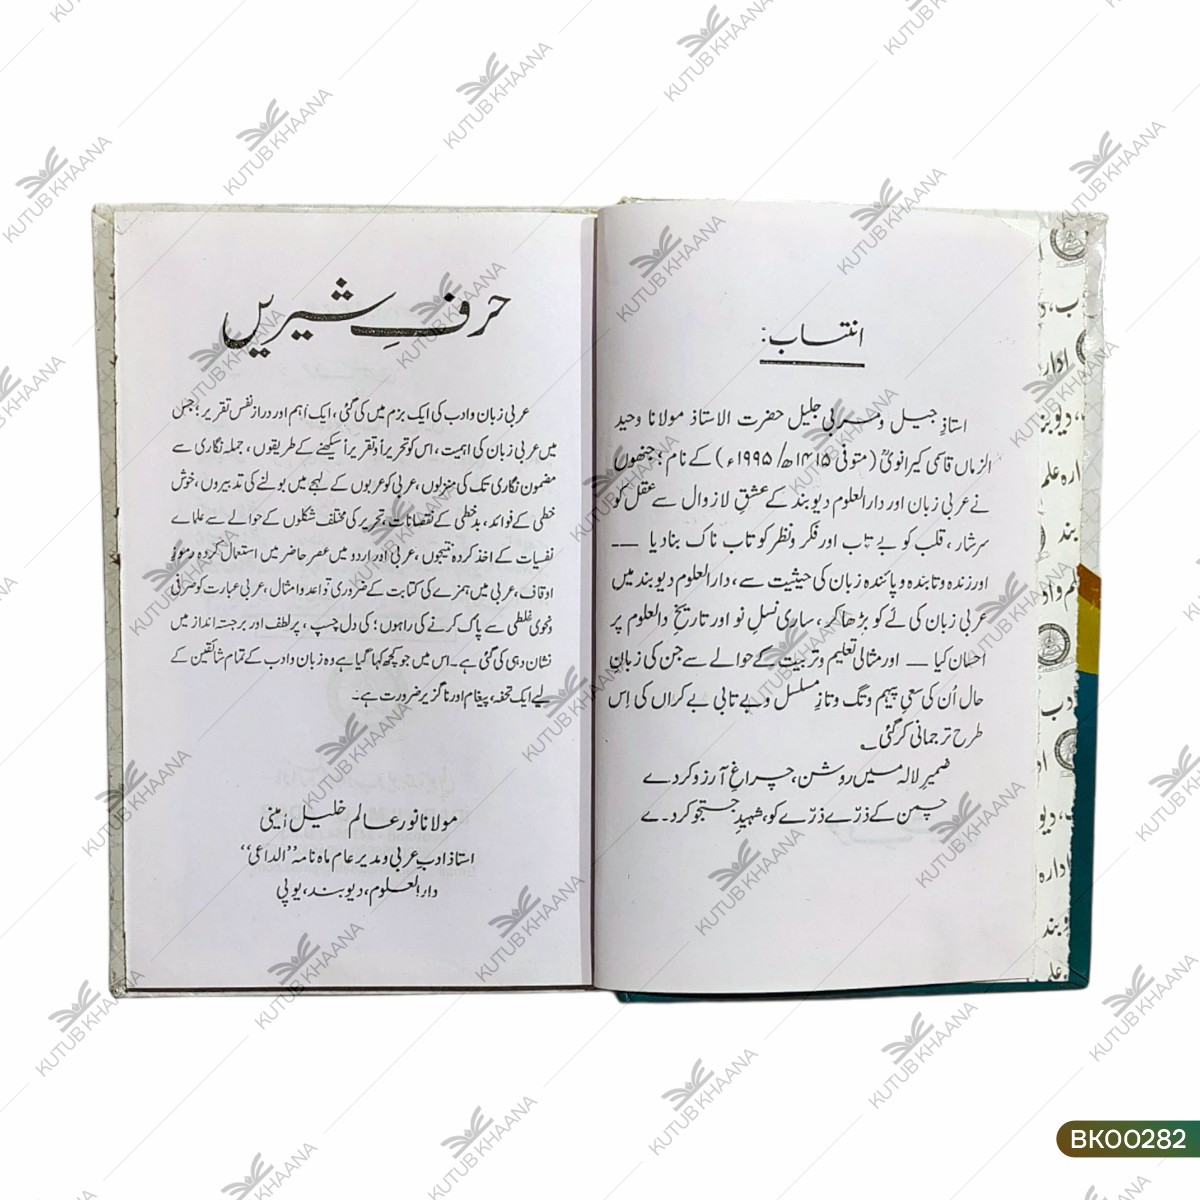 انتساب:
استاذِ جیل و مربی جلیل حضرت الاستاذ مولانا وحید
الزماں قاسمی کیرانویؒ (متوفی ۱۴۱۵ھ/۱۹۹۵ء) کے نام؛ جنھوں
نے عربی زبان اور دارالعلوم دیوبند کے عشقِ لازوال سے عقل کو
سرشار، قلب کو بے تاب اور فکر ونظر کو تاب ناک بنادیا —
اور زندہ وتابندہ و پائندہ زبان کی حیثیت سے، دارالعلوم دیوبند میں
عربی زبان کی لَے کو بڑھاکر، ساری نسلِ نو اور تاریخِ دالعلوم پر
احسان کیا — اور مثالی تعلیم وتربیت کے حوالے سے جن کی زبانِ
حال اُن کی سعیِ پیہم وتگ وتازِ مسلسل و بے تابی بے کراں کی اِس
طرح ترجمانی کرگئی ؎
ضمیرِ لالہ میں روشن، چراغِ آرزو کردے
چمن کے ذرّے ذرّے کو، شہیدِ جستجو کردے
حرفِ شیریں
عربی زبان وادب کی ایک بزم میں کی گئی، ایک اہم اور دراز نفس تقریر؛ جس
میں عربی زبان کی اہمیت، اس کو تحریراً وتقریراً سیکھنے کے طریقوں، جملہ نگاری سے
مضمون نگاری تک کی منزلوں، عربی کو عربوں کے لہجے میں بولنے کی تدبیروں، خوش
خطی کے فوائد، بدخطی کے نقصانات، تحریر کی مختلف شکلوں کے حوالے سے علماے
نفسیات کے اخذ کردہ نتیجوں، عربی اور اردو میں عصر حاضر میں استعمال کردہ رموزِ
اوقاف، عربی میں ہمزے کی کتابت کے ضروری قواعد وامثال، عربی عبارت کو صرفی
ونحوی غلطی سے پاک کرنے کی راہوں؛ کی دل چسپ، پرلطف اور برجستہ انداز میں
نشان دہی کی گئی ہے۔ اس میں جو کچھ کہا گیا ہے وہ زبان وادب کے تمام شائقین کے
لیے ایک تحفہ، پیغام اور ناگزیر ضرورت ہے۔
مولانا نور عالم خلیل امینی
استاذ ادب عربی و مدیر عام ماہ نامہ ”الداعی“
دارالعلوم، دیوبند، یوپی
KUTUB KHAANA
BK00282